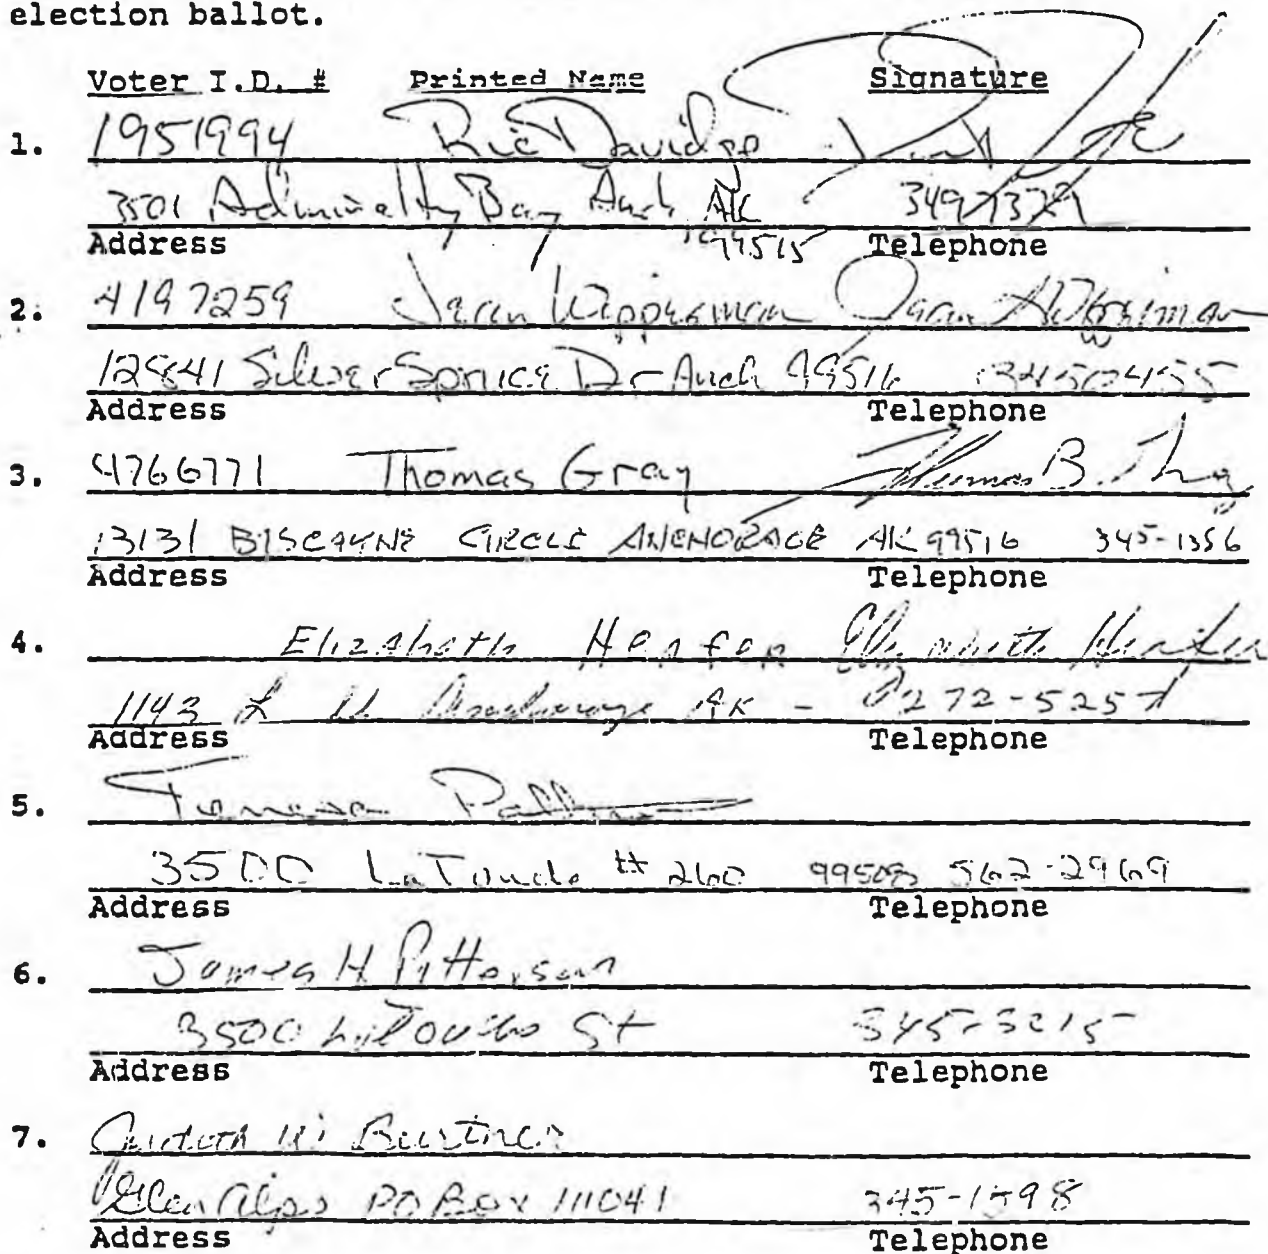 election ballot.
Voter I.D. # Printed Name Signature
1. 1951994 Ric Davidge
3501 Admiralty Bay Anch AK 3497329
99515
Address Telephone
2. 4197259 Jean
12841 Silver Spruce Dr Anch 99516 3450455
Address Telephone
3. 4766771 Thomas Gray Thomas B.
13131 BISCAYNE CIRCLE ANCHORAGE AK 99516 345-1356
Address Telephone
4. Elizabeth Henfer Elizabeth
1143 L St Anchorage AK - 272-5257
Address Telephone
5. Teresa
3500 LaTouche # 260 99508 562-2969
Address Telephone
6. James H Patterson
3500 LaTouche St 345-3215
Address Telephone
7. Judith W. Burtner
Glen Alps PO Box 111041 345-1598
Address Telephone